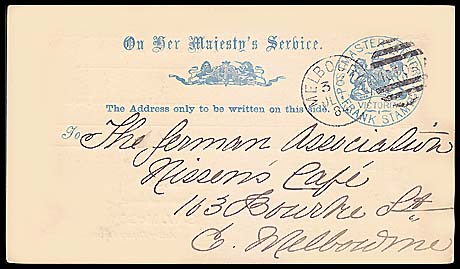 On Her Majesty's Service.
MELBO
POSTMASTER
VICTORIA
FRANK STAMP
The Address only to be written on this side.
To The German Association
Nissen's Café
103 Bourke St
E. Melbourne